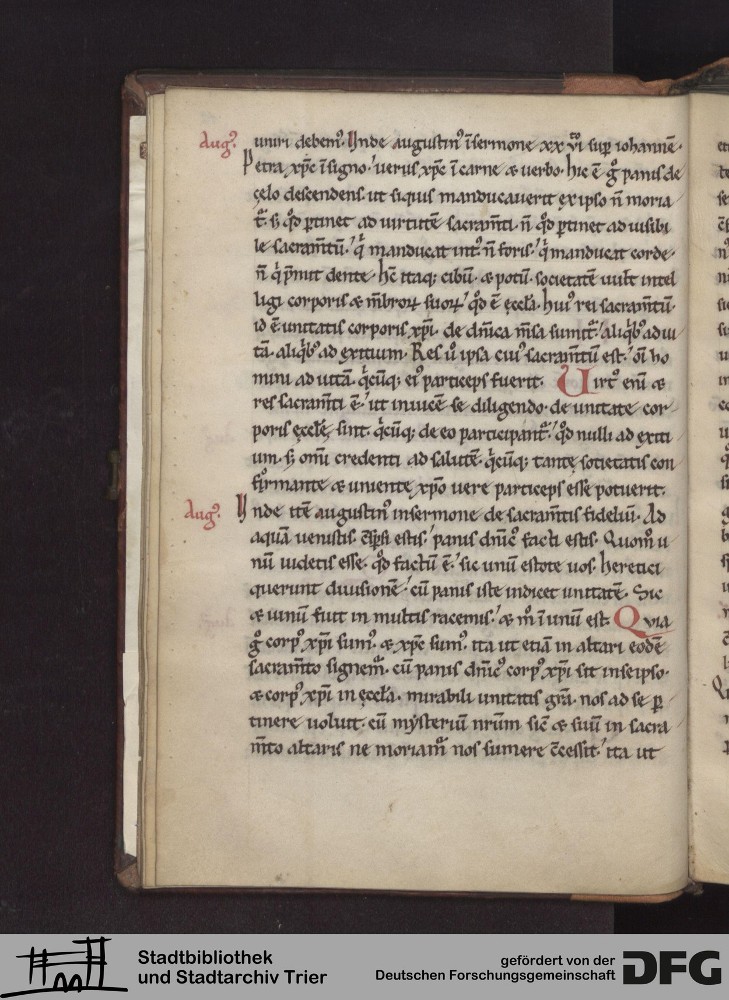 Aug᷒. uniri debem᷒. Unde augustin᷒ ı̄ sermone xx vi sup iohannē.
Petra xp̄c ı̄ signo.' verus xp̄c ı̄ carne & verbo. hic ē g̊ panis de
cęlo descendens. ut siquis manducaverit ex ipso n̄ moria
t᷒. s; qd̄ ꝑtinet ad uirtutē sacram̄ti. n̄ qd̄ ꝑtinet ad uisibi
le sacram̄tū.' q̇ manducat int᷒ n̄ foris.' q̇ manducat corde.
n̄ q̇ p̄mit dente. hc̄ itaq; cibū. & potū. societatē uult intel
ligi corporis & m̄broꝝ suoꝝ.' qd̄ ē ęccl̄a. hui᷒ rei sacram̄tū.
id ē unitatis corporis xp̄i. de dn̄ica m̄sa sumit᷒.' aliq̇b᷒ ad ui
tā. aliq̇b᷒ ad exitium. Res ū ipsa cui᷒ sacram̄tū est.' om̄i ho
mini ad uitā. q̇cūq; ei᷒ particeps fuerit. Virt᷒ enī &
res sacram̄ti ē.' ut inuicē se diligendo. de unitate cor
poris ęccl̄ę sint. q̇cūq; de eo participant᷒.' qd̄ nulli ad exiti
um. s; omni credenti ad salutē. q̇cūq; tantę societatis con
firmante & uniente xp̄o uere particeps esse potuerit.
Aug᷒. Unde itē augustin᷒ in sermone de sacram̄tis fidelium. Ad
aquā uenistis. c̄spsi estis.' panis dn̄ic᷒ facti estis. Quom̊ u
nū uidetis esse. qd̄ factū ē.' sic unū estote uos. heretici
querunt diuisionē.' cū panis iste indicet unitatē. Sic
& uinū fuit in multis racemis.' & m̊ ı̄ unū est. Quia
g̊ corp᷒ xp̄i sum᷒. & xp̄c sum᷒. ita ut etiā in altari eodē
sacram̄to signem᷒. cū panis dn̄ic᷒ corp᷒ xp̄i sit in se ipso.
& corp᷒ xp̄i in ęccl̄a. mirabili unitatis gr̄a. nos ad se ꝑ
tinere uoluit. cū mysteriū nr̄um sic̄ & suū in sacra
m̄to altaris ne moriam᷒ nos sumere c̄cessit.' ita ut
Stadtbibliothek
und Stadtarchiv Trier
gefördert von der
Deutschen Forschungsgemeinschaft
DFG